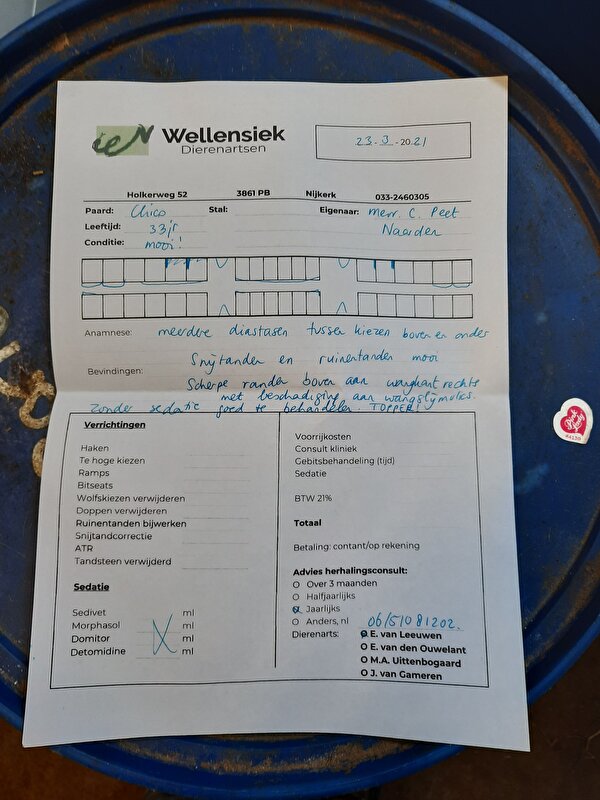 ieN Wellensiek
Dierenartsen
23-3-2021
Holkerweg 52 3861 PB Nijkerk 033-2460305
Paard: Chico Stal: Eigenaar: mevr. C. Peet
Leeftijd: 33jr Naarden
Conditie: mooi!
Anamnese: meerdere diastasen tussen kiezen boven en onder
Snijtanden en ruinentanden mooi
Bevindingen:
Scherpe randen boven aan wangkant rechts
met beschadiging aan wangslijmvlies.
Zonder sedatie goed te behandelen. TOPPER!
Verrichtingen
Haken
Te hoge kiezen
Ramps
Bitseats
Wolfskiezen verwijderen
Doppen verwijderen
Ruinentanden bijwerken
Snijtandcorrectie
ATR
Tandsteen verwijderd
Sedatie
Sedivet ml
Morphasol ml
Domitor ml
Detomidine ml
Voorrijkosten
Consult kliniek
Gebitsbehandeling (tijd)
Sedatie
BTW 21%
Totaal
Betaling: contant/op rekening
Advies herhalingsconsult:
Over 3 maanden
Halfjaarlijks
Jaarlijks
Anders, nl 06/51081202.
Dierenarts: E. van Leeuwen
E. van den Ouwelant
M.A. Uittenbogaard
J. van Gameren
Pink Lady